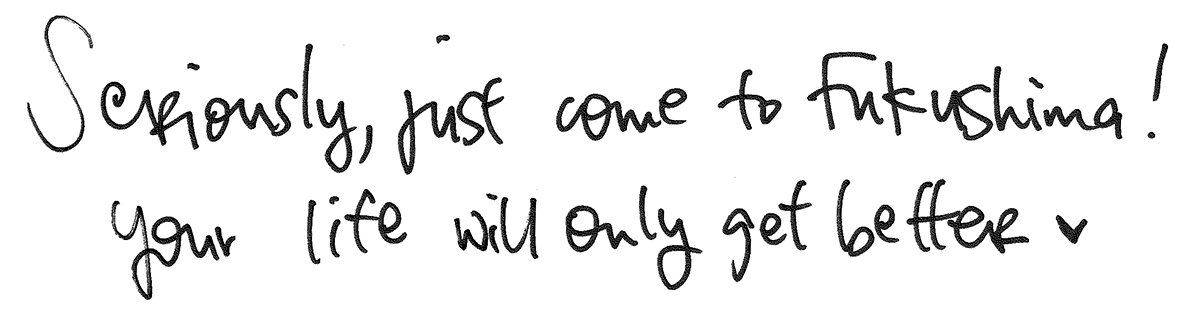 Seriously, just come to Fukushima!
your life will only get better ♥